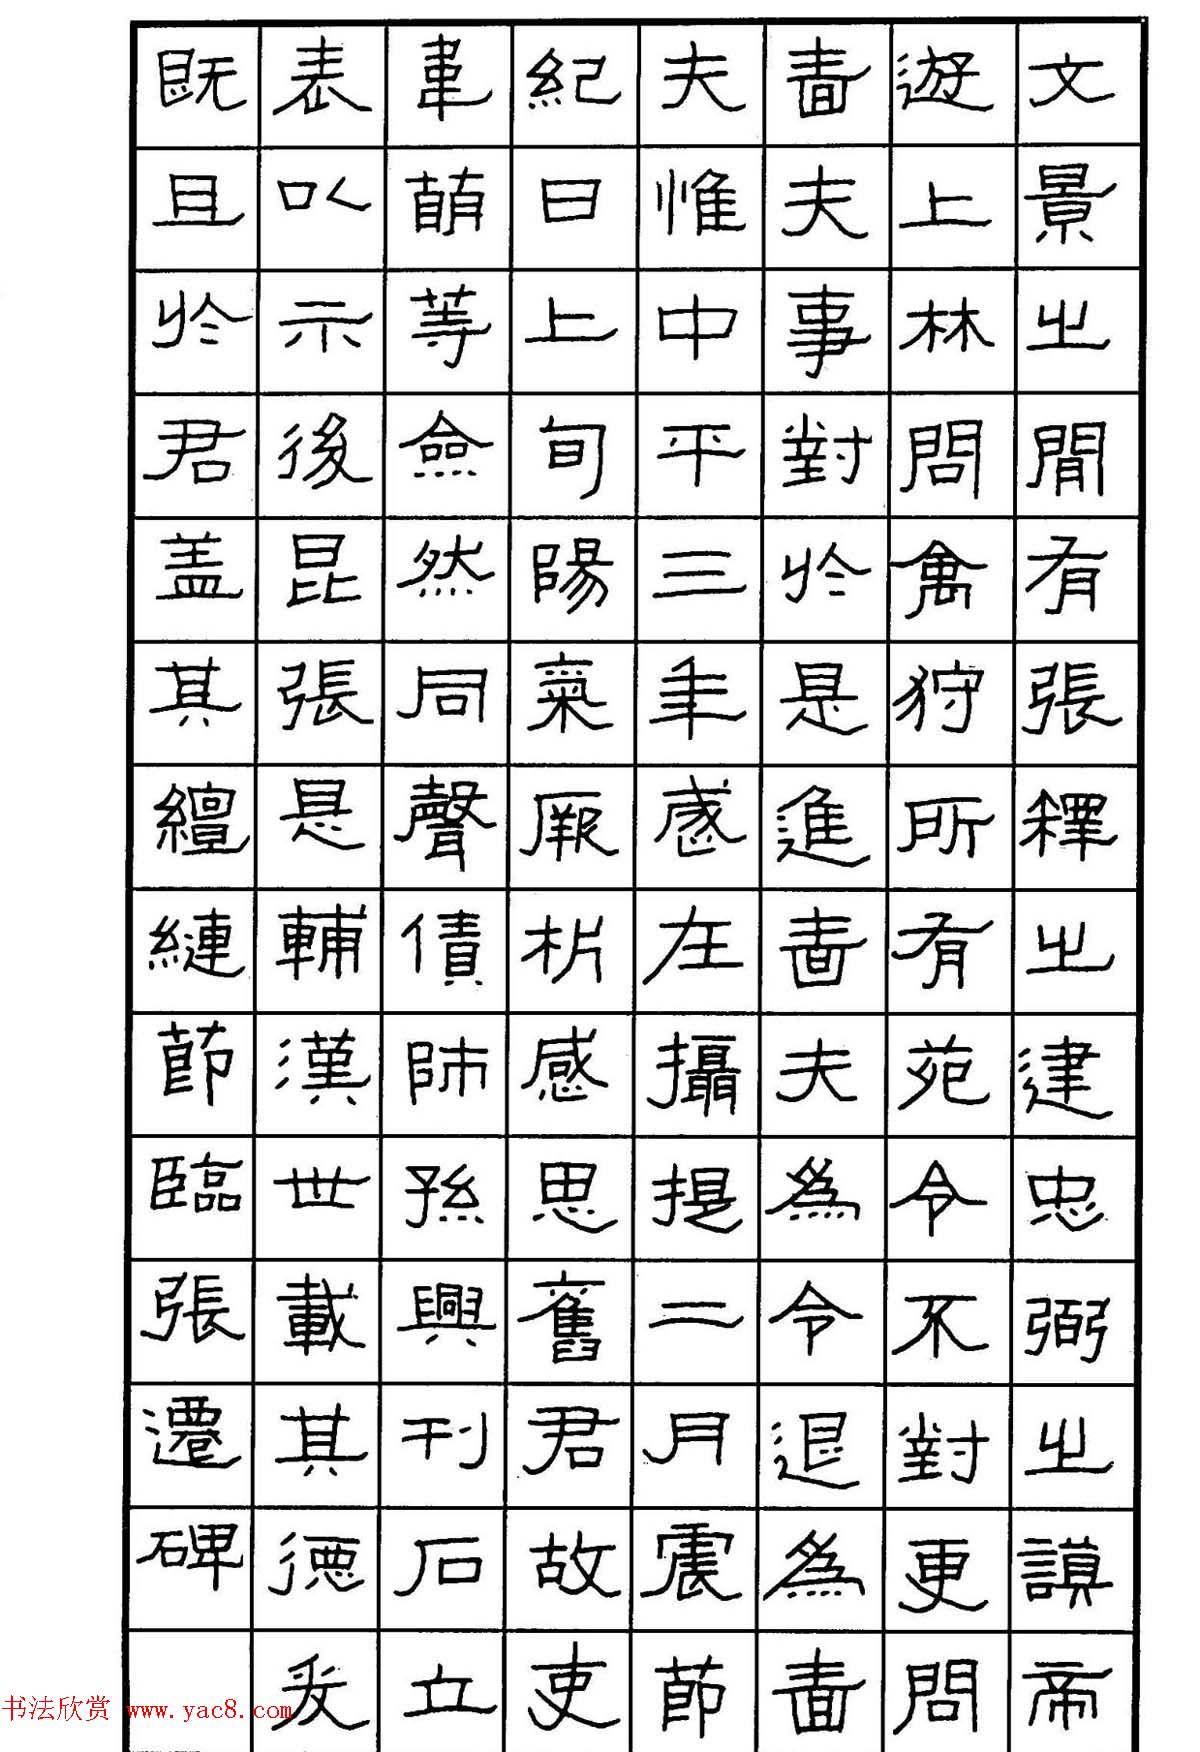 文景之間有張釋之建忠弼之謨帝
遊上林問禽狩所有苑令不對更問
嗇夫事對於是進嗇夫為令退為嗇
夫惟中平三年歲在攝提二月震節
紀日上旬陽氣厥析感思舊君故吏
韋萌等僉然同聲賃師孫興刊石立
表以示後昆張是輔漢世載其德爰
既且於君蓋其繵縺節臨張遷碑
书法欣赏 www.yac8.com